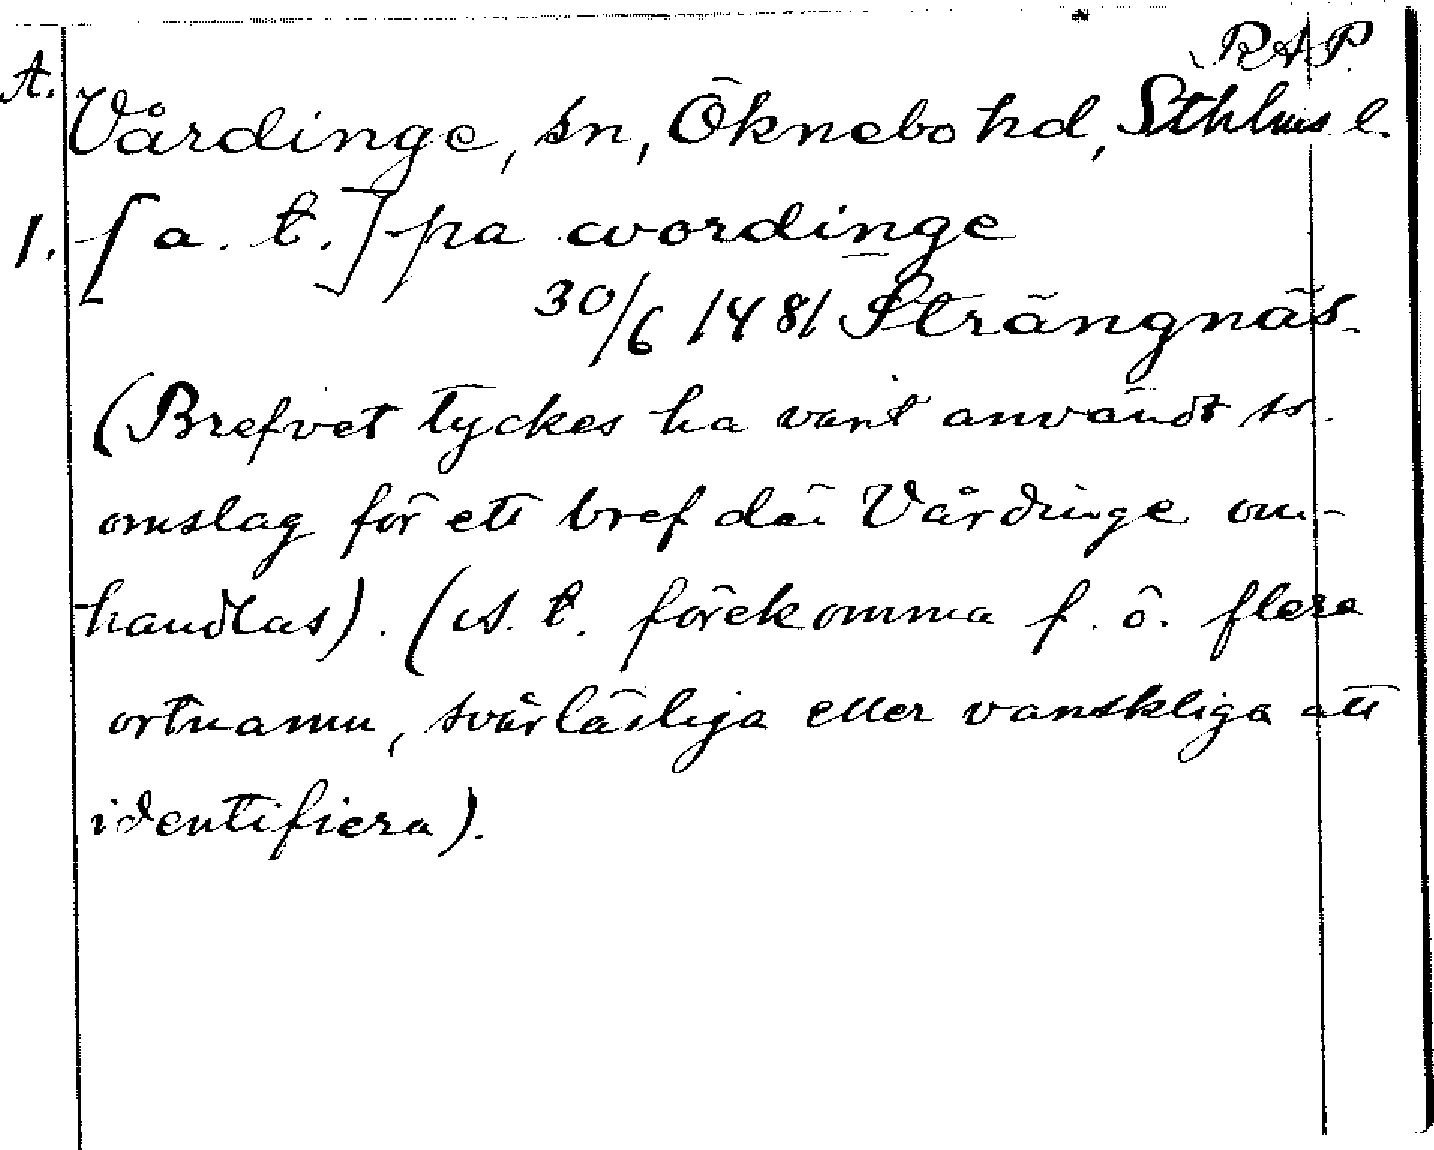 RAP.
A. Vårdinge, sn, Öknebo hd, Sthlms l.
1. [a. t.] pa wordinge
30/6 1481 Strängnäs.
(Brefvet tyckes ha varit användt ss.
omslag för ett bref där Vårdinge om-
handlas). (A. t. förekomma f. ö. flera
ortnamn, svårläsliga eller vanskliga att
identifiera).